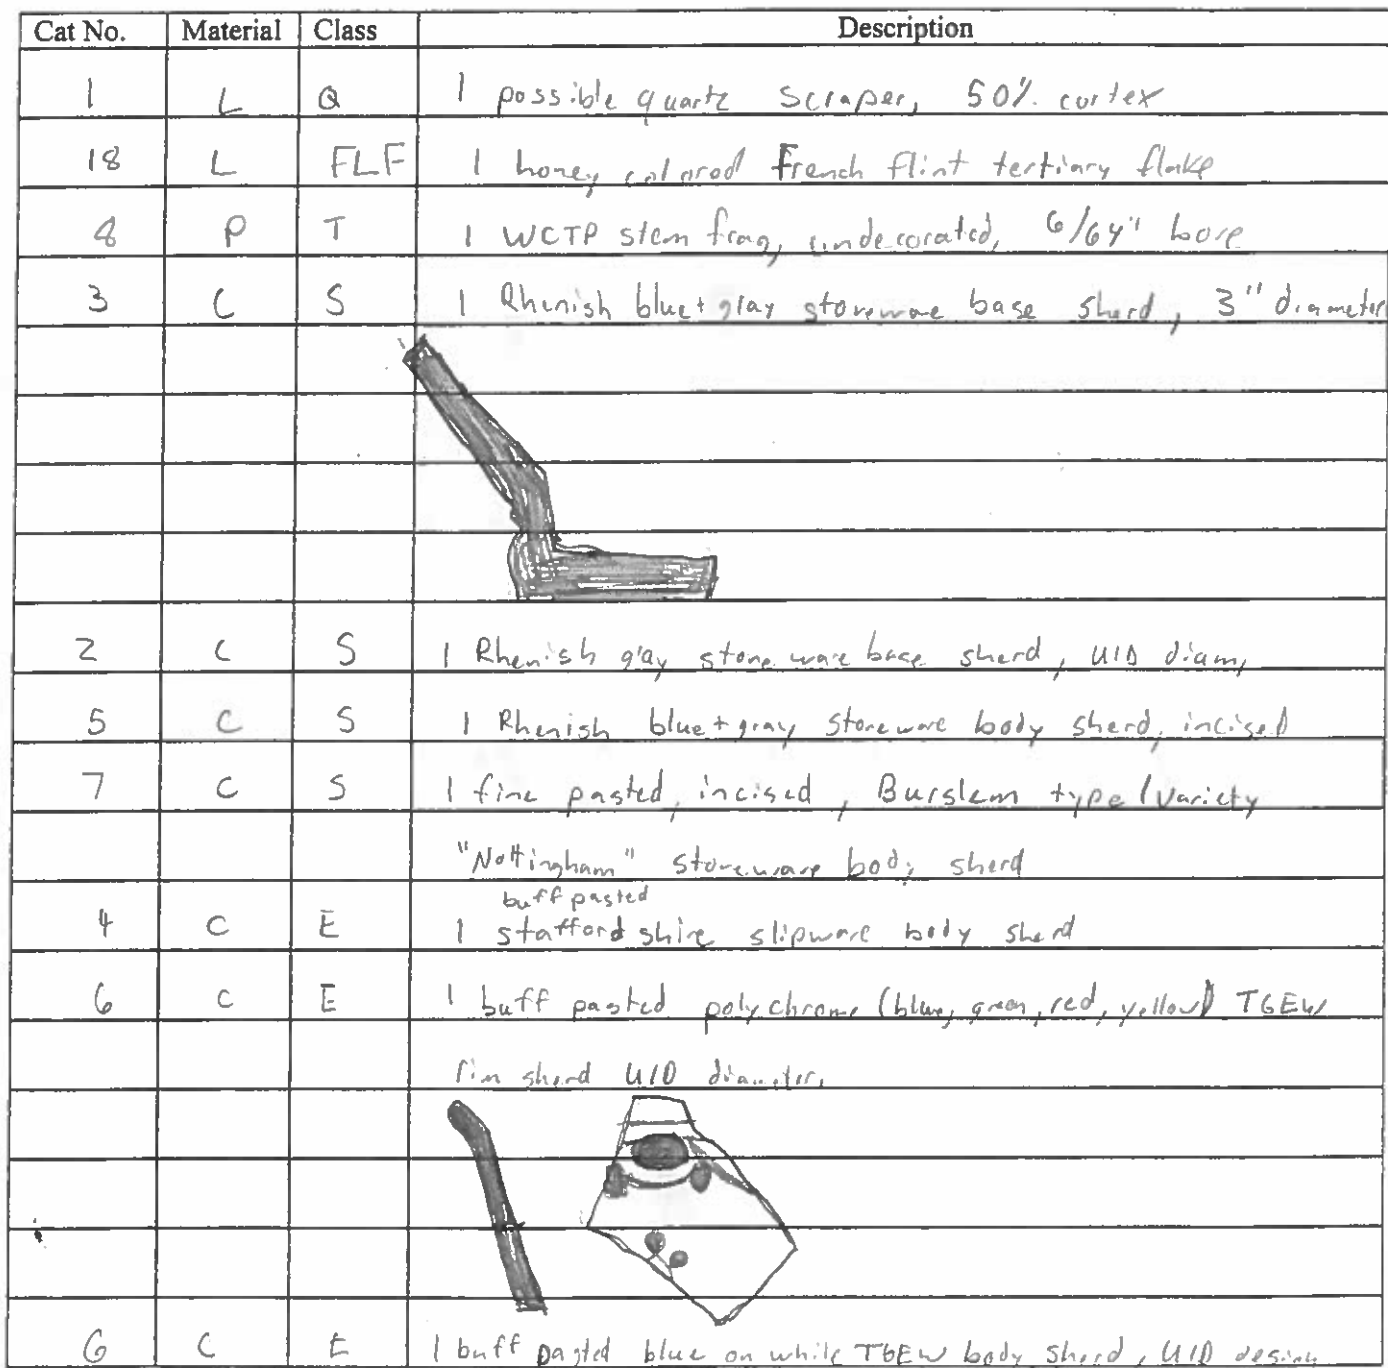 Cat No. Material Class Description
1 L Q 1 possible quartz scraper, 50% cortex
18 L FLF 1 honey colored French flint tertiary flake
8 P T 1 WCTP stem frag, undecorated, 6/64" bore
3 C S 1 Rhenish blue+gray stoneware base sherd, 3" diameter
2 C S 1 Rhenish gray stoneware base sherd, UID diam,
5 C S 1 Rhenish blue+gray stoneware body sherd, incised
7 C S 1 fine pasted, incised, Burslem type/variety
"Nottingham" stoneware body sherd
buff pasted
4 C E 1 staffordshire slipware body sherd
6 C E 1 buff pasted polychrome (blue, green, red, yellow) TGEW
rim sherd UID diameter,
6 C E 1 buff pasted blue on white TGEW body sherd, UID design